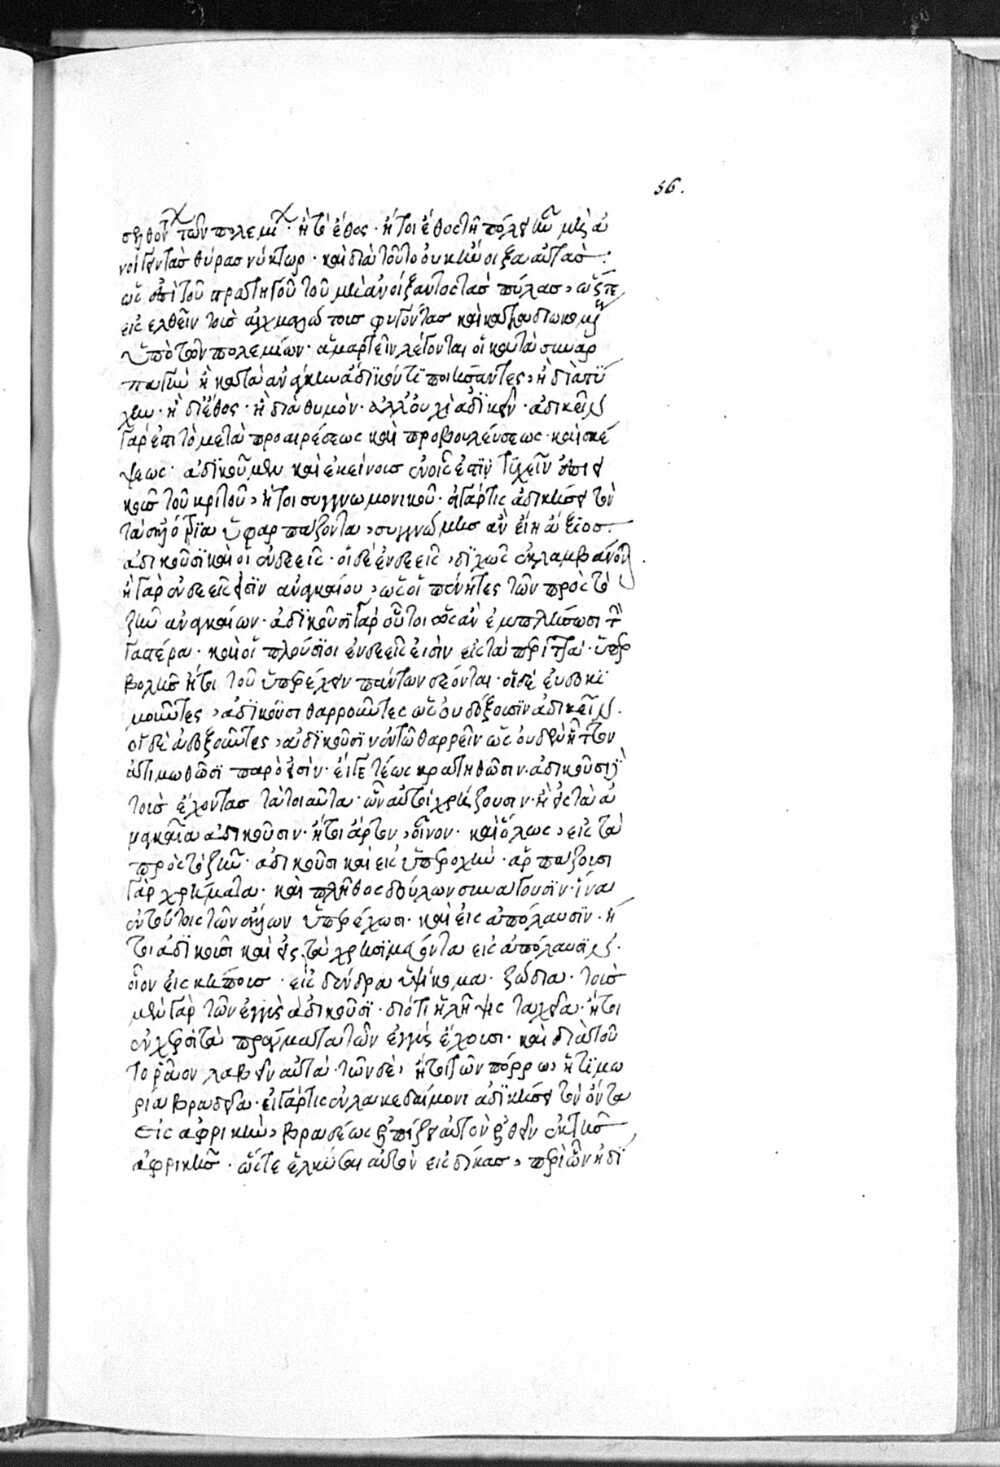 56.
τῶν πολεμι ἢ δι' ἔθος · ἤτοι ἔθος τῆ πόλει ἦν μὴ ἀ
νοίγεντας θύρας νύκτωρ · καὶ διὰ τοῦτο οὐκ ἤνοιξα αὐτάς :
ὡς ἐπὶ τοῦ στρατηγοῦ τοῦ μὴ ἀνοίξαντος τὰς πύλας, ὥστε
εἰσελθεῖν τοὺς αἰχμαλώτους φυγόντας καὶ
ὑπὸ τῶν πολεμίων · ἁμαρτεῖν λέγονται οἱ κατὰ συναρ
παγὴν ἢ κατὰ ἀνάγκην ἀδίκόν τι ποιήσαντες, ἢ διὰ τύ
χην · ἢ δι' ἔθος · ἢ διὰ θυμόν · ἀλλ' οὐχὶ ἀδικεῖν · ἀδικεῖν
γάρ ἐστι τὸ μετὰ προαιρέσεως καὶ προβουλεύσεως · καὶ σκέ
ψεως · ἀδικοῦμεν καὶ ἐκείνοις ἐν οἷς ἐστὶν τυχεῖν ἐπιει
κοῦς τοῦ κριτοῦ, ἤτοι συγγνωμονικοῦ · εἰ γάρ τις ἀδικήσει τὸν
τὰ ὑφαρπάζοντα, συγγνώμης ἂν εἴη ἄξιος.
ἀδικοῦσι καὶ οἱ ἐνδεεῖς · οἱ δὲ ἐνδεεῖς, διχῶς ἐκλαμβάνον
ἢ γὰρ ἐνδεεῖς εἰσὶν ἀναγκαίου, ὡς οἱ πένητες τῶν πρὸς τὸ
ζῆν ἀναγκαίων · ἀδικοῦσι γὰρ οὗτοι ὡς ἂν ἐμπλήσωσι τὴν
γαστέρα · καὶ οἱ πλούσιοι ἐνδεεῖς εἰσὶν εἰς τὰ περιττά · ὑπερ
βολῆς ἤτοι τοῦ ὑπερέχειν πάντων δέονται · οἱ δὲ εὐδοκι
μοῦντες, ἀδικοῦσι θαρροῦντες ὡς οὐ δόξουσιν ἀδικεῖν.
οἱ δὲ ἀδοξοῦντες, ἀδικοῦσιν ἐν τῷ θαρρεῖν ὡς οὐδὲν ἧττον
ἀτιμωθῶσι παρό εἰσίν · εἴ γε τέως κρατηθῶσιν · ἀδικοῦσι
τοὺς ἔχοντας τὰ τοιαῦτα · ὧν αὐτοὶ χρήζουσιν · ἢ εἰς τὰ ἀ
ναγκαῖα ἀδικοῦσιν · ἤτοι ἄρτον, οἶνον · καὶ ὅλως, εἰς τὰ
πρὸς τὸ ζῆν · ἀδικοῦσι καὶ εἰς ὑπεροχήν · ἁρπάζουσι
γὰρ χρήματα · καὶ πλῆθος δούλων συνάγουσιν · ἵνα
ἐν τούτοις τῶν ἄλλων ὑπερέχωσι · καὶ εἰς ἀπόλαυσιν · ἤ
τοι ἀδικοῦσι καὶ εἰς τὰ χρησιμεύοντα εἰς ἀπόλαυσιν.
οἷον εἰς κήπους · εἰς δένδρα ὑψίκομα · ζώδια · τοὺς
μὲν γὰρ τῶν ἐγγὺς ἀδικοῦσι · διότι ἡ λῆψις ταχεῖα · ἤτοι
ἐν χερσὶ τὰ πράγματα τῶν ἐγγὺς ἔχουσι · καὶ διὰ τοῦ
το ῥᾷον λαβεῖν αὐτά · τῶν δὲ, ἤτοι τῶν πόρρω, ἡ τιμω
ρία βραδεῖα · εἰ γάρ τις ἐν λακεδαίμονι ἀδικήσει τὸν ὄντα
εἰς ἀφρικήν, βραδέως ἐπέξει αὐτὸν ἐλθεῖν ἐκ τῆς
ἀφρικῆς · ὥστε ἑλκύσαι αὐτὸν εἰς δίκας, περὶ ὧν ἠδί